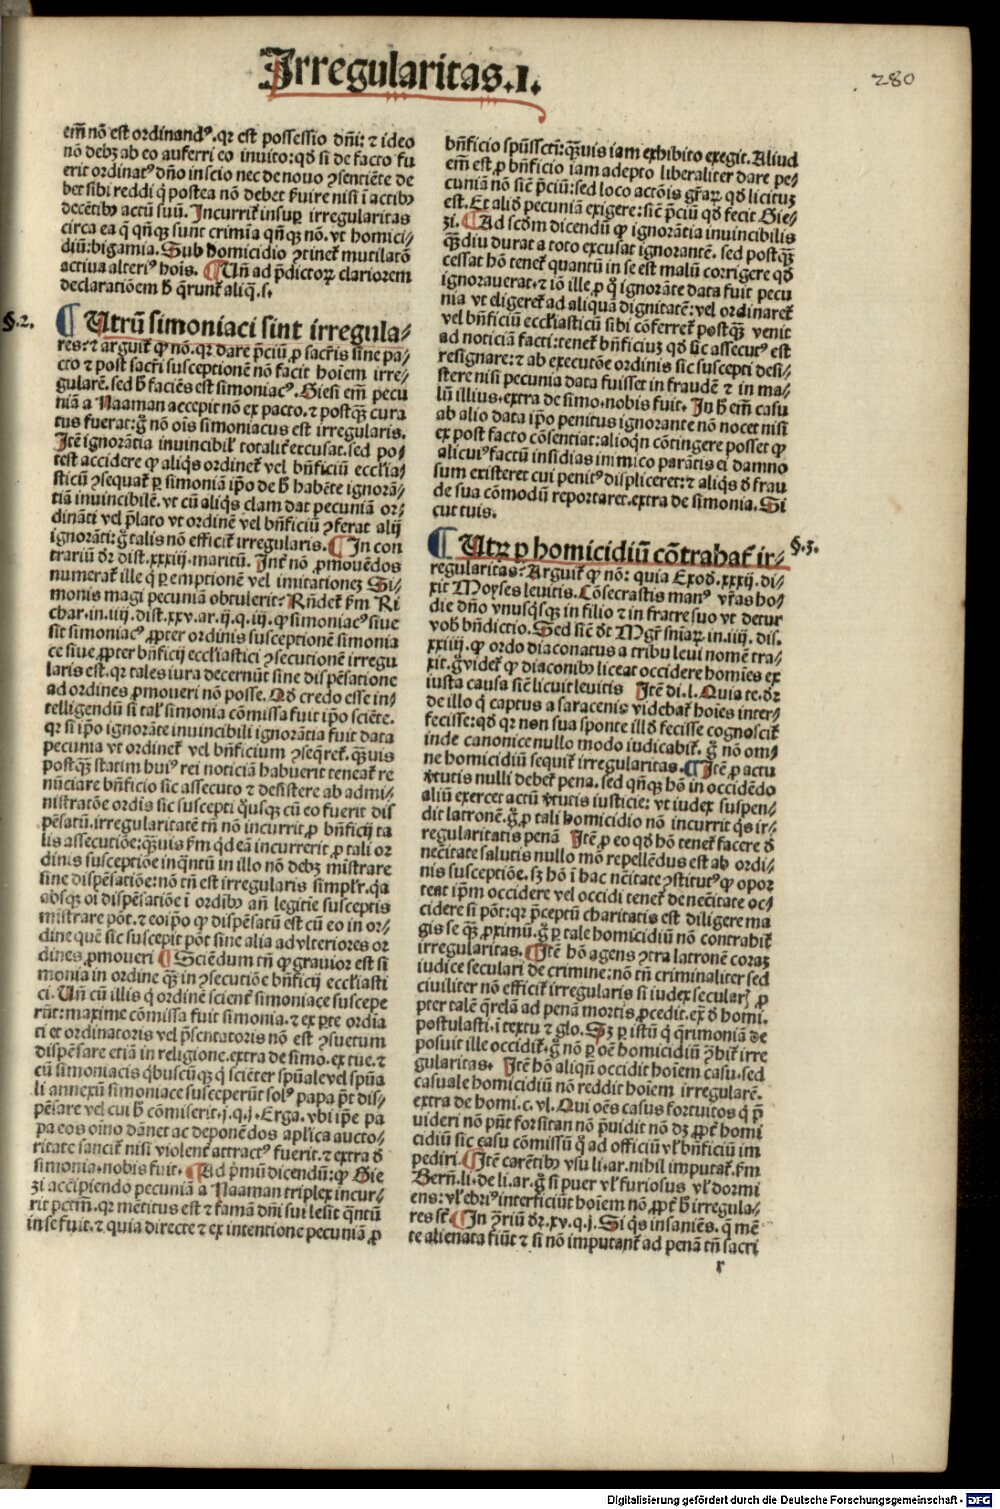 Irregularitas.I.
280
em̄ nō est ordinandꝰ.qr est possessio dn̄i: ⁊ ideo
nō debꝫ ab eo auferri eo inuito: qd̛ si de facto fu
erit ordinatꝰ dn̄o inscio nec de nouo ꝯsentiēte de
bet sibi reddi q̇ postea nō debet ẜuire nisi ī actibꝰ
decētibꝰ actū suū. Incurrit̄ insuꝑ irregularitas
circa ea q̄ qn̄qꝫ sunt crimīa qn̄qꝫ nō. vt homici⸗
diū: bigamia. Sub homicidio ꝯtinet̄ mutilatō
actiua alteriꝰ hoīs. ¶ Un̄ ad p̄dictoꝝ clariorem
declaratiōem h̛ q̄runt̄ aliq̄.s.
§.2.
¶ Utrū simoniaci sint irregula⸗
res? ⁊ arguit̄ ꝙ nō. qr dare p̄ciū ꝓ sacr̄is sine pa⸗
cto ⁊ post sacr̄i susceptionē nō facit hoīem irre⸗
gularē. sed h̛ faciēs est simoniacꝰ. Giesi em̄ pecu
niā a Naaman accepit nō ex pacto. ⁊ postqꝫ̄ cura
tus fuerat: ḡ nō oīs simoniacus est irregularis.
Itē ignorātia invincibil̛ totalit̄ excusat. sed po⸗
test accidere ꝙ aliq̇s ordinet̄ vel bn̄ficiū eccl̛ia⸗
sticū ꝯsequat̄ ꝑ simoniā ip̄o de h̛ habēte ignorā⸗
tiā inuincibilē. vt cū aliq̇s clam dat pecuniā or⸗
dināti vel p̄lato vt ordinē vel bn̄ficiū ꝯferat alij
ignorāti: ḡ talis nō efficit̄ irregularis. ¶ In con
trariū dr̄ dist.xxxiij.maritū. Int̄ nō ꝓmouēdos
numerat̄ ille q̇ ꝑ emptionē vel imitationeꝫ Si⸗
monis magi pecuniā obtulerit? Rn̄det̄ ẜm Ri
char. in.iiij.dist.xxv.ar.ij.q.iij. ꝙ simoniacꝰ siue
sit simoniacꝰ ꝓpter ordinis susceptionē simonia
ce siue ꝓpter bn̄ficij eccl̛iastici ꝯsecutionē irregu
laris est. qr tales iura decernūt sine dispēsatione
ad ordines ꝓmoueri nō posse. Qd̛ credo esse in⸗
telligendū si tal̛ simonia cōmissa fuit ip̄o sciēte.
qr si ip̄o ignorāte inuincibili ignorātia fuit data
pecunia vt ordinet̄ vel bn̄ficium ꝯseqret̄. qꝫ̄uis
postqꝫ̄ statim huiꝰ rei noticiā habuerit teneat̄ re
nūciare bn̄ficio sic assecuto ⁊ desistere ab admi⸗
nistratōe ordīs sic suscepti q̇usqꝫ cū eo fuerit dis
pēsatū. irregularitatē tn̄ nō incurrit ꝓ bn̄ficij ta
lis assecutiōe: qꝫ̄uis ẜm qd eā incurrerit ꝓ tali or
dinis susceptiōe inq̄ntū in illo nō debꝫ mīstrare
sine dispēsatiōe: nō tn̄ est irregularis simpl̛r. q̇a
absqꝫ oī dispēsatiōe ī ordībꝰ an̄ legitie susceptis
mīstrare pōt. ⁊ eoip̄o ꝙ dispēsatū est cū eo in or⸗
dine quē sic suscepit pōt sine alia ad vlteriores or
dines ꝓmoueri ¶ Sciēdum tn̄ ꝙ grauior est si
monia in ordine qꝫ̄ in ꝯsecutiōe bn̄ficij eccl̛iasti
ci. Un̄ cū illis q̇ ordinē scient̄ simoniace suscepe
rūt: maxime cōmissa fuit simonia. ⁊ ex ꝑte ordīa
ti et ordinatoris vel p̄sentatoris nō est ꝯsuetum
dispēsare etiā in religione. extra de simo. ex tue. ⁊
cū simoniacis q̇buscūqꝫ q̇ sciēter spūale vel spūa
li annexū simoniace susceperūt solꝰ papa p̄t dis⸗
pēsare vel cui h̛ cōmiserit. j.q.j. Erga. vbi ip̄e pa
pa eos oīno dānet ac deponēdos ap̄lica aucto⸗
ritate sancit̄ nisi violent̄ attractꝰ fuerit. ⁊ extra d̛
simonia. nobis fuit. ¶ Ad p̄mū dicendū: ꝙ Gie
zi accipiendo pecuniā a Naaman triplex incur⸗
rit pctm̄. qr mētitus est ⁊ famā dn̄i sui lesit q̄ntū
in se fuit. ⁊ quia directe ⁊ ex intentione pecuniā ꝓ
bn̄ficio spūssctī: qꝫ̄uis iam exhibito exegit. Aliud
em̄ est ꝓ bn̄ficio iam adepto liberaliter dare pe⸗
cuniā nō sic̄ p̄ciū: sed loco actōis gr̄aꝝ qd̛ licituꝫ
est. Et aliḋ pecuniā exigere: sic̄ p̄ciū qd̛ fecit Gie⸗
zi. ¶ Ad scd̛m dicendū ꝙ ignorātia inuincibilis
qꝫ̄diu durat a toto excusat ignorantē. sed postqꝫ̄
cessat hō tenet̄ quantū in se est malū corrigere qd̛
ignorauerat. ⁊ iō ille ꝓ q̇ ignorāte data fuit pecu
nia vt eligeret̄ ad aliquā dignitatē: vel ordinaret̄
vel bn̄ficiū eccl̛iasticū sibi cōferret̄ postqꝫ̄ venit
ad noticiā facti: tenet̄ bn̄ficiuꝫ qd̛ sic assecutꝰ est
resignare: ⁊ ab executōe ordinis sic suscepti desi⸗
stere nisi pecunia data fuisset in fraudē ⁊ in ma⸗
lū illius. extra de simo. nobis fuit. In h̛ em̄ casu
ab alio data ip̄o penitus ignorante nō nocet nisi
ex post facto cōsentiat: alioqn̄ cōtingere posset ꝙ
alicuiꝰ factū insidias inimico parātis ei damno
sum existeret cui penitꝰ displiceret: ⁊ aliq̇s d̛ frau
de sua cōmodū reportaret. extra de simonia. Si
cut tuis.
§.3.
¶ Utꝝ ꝑ homicidiū cōtrahat̄ ir⸗
regularitas? Arguit̄ ꝙ nō: quia Exod̛.xxxij. di⸗
xit Moyses leuitis. Cōsecrastis manꝰ vr̄as ho⸗
die dn̄o vnusq̇sqꝫ in filio ⁊ in fratre suo vt detur
vob̛ bn̄dictio. Sed sic̄ dr̄ Mgr̄ sniaꝝ in.iiij. dis.
xxiiij. ꝙ ordo diaconatus a tribu leui nomē tra⸗
xit. ḡ videt̄ ꝙ diaconibꝰ liceat occidere homīes ex
iusta causa sic̄ licuit leuitis Itē di.l. Quia te. dr̄
de illo q̇ captus a saracenis videbat̄ hoīes inter⸗
fecisse: qd̛ qr non sua sponte illd̛ fecisse cognoscit̄
inde canonice nullo modo iudicabit̄. ḡ nō om⸗
ne homicidiū sequit̄ irregularitas. ¶ Itē ꝓ actu
v̄tutis nulli debet̄ pena. sed qn̄qꝫ hō in occidēdo
aliū exercet actū v̄tutis iusticie: vt iudex suspen⸗
dit latronē. ḡ ꝓ tali homicidio nō incurrit q̇s ir⸗
regularitatis penā Itē ꝓ eo qd̛ hō tenet̄ facere d̛
nec̄itate salutis nullo mō repellēdus est ab ordi⸗
nis susceptiōe. sꝫ hō ī hac nc̄itate ꝯstitutꝰ ꝙ opor
teat ip̄m occidere vel occidi tenet̄ de nec̄itate oc⸗
cidere si pōt: qr p̄ceptū charitatis est diligere ma
gis se qꝫ̄ ꝓximū. ḡ ꝑ tale homicidiū nō contrahit̄
irregularitas. ¶ Itē hō agens ꝯtra latronē coraꝫ
iudice seculari de crimine: nō tn̄ criminaliter sed
ciuiliter nō efficit̄ irregularis si iudex secularꝭ ꝓ
pter talē q̄relā ad penā mortis ꝓcedit. ex̄ d̛ homi.
postulasti. ī textu ⁊ glo. Sꝫ ꝑ istū q̇ q̄rimoniā de
posuit ille occidit̄. ḡ nō ꝑ oē homicidiū ꝯhit̄ irre
gularitas. Itē hō aliqn̄ occidit hoīem casu. sed
casuale homicidiū nō reddit hoīem irregularē.
extra de homi.c.vl. Qui oēs casus fortuitos q̇ p̄
uideri nō pn̄t forsitan nō p̄uidit nō dꝫ ꝓpt̄ homi
cidiū sic casu cōmissū q̇ ad officiū vl̛ bn̄ficiū im
pediri. ¶ Itē carētibꝰ vsu li. ar. nihil imputat̄. ẜm
Bern̄. li. de li. ar. ḡ si puer vl̛ furiosus vl̛ dormi
ens: vl̛ ebriꝰ interficiūt hoīem nō ꝓpt̄ h̛ irregula⸗
res st̄ ¶ In ꝯriū dr̄.xv.q.j. Si q̇s insaniēs. q̄ mē
te alienata fiūt ⁊ si nō imputant̄ ad penā tn̄ sacri
r
Digitalisierung gefördert durch die Deutsche Forschungsgemeinschaft - DFG